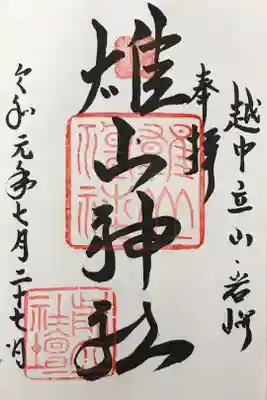 越中立山岩峅
奉拝
雄山神社
令和元年七月二十七日